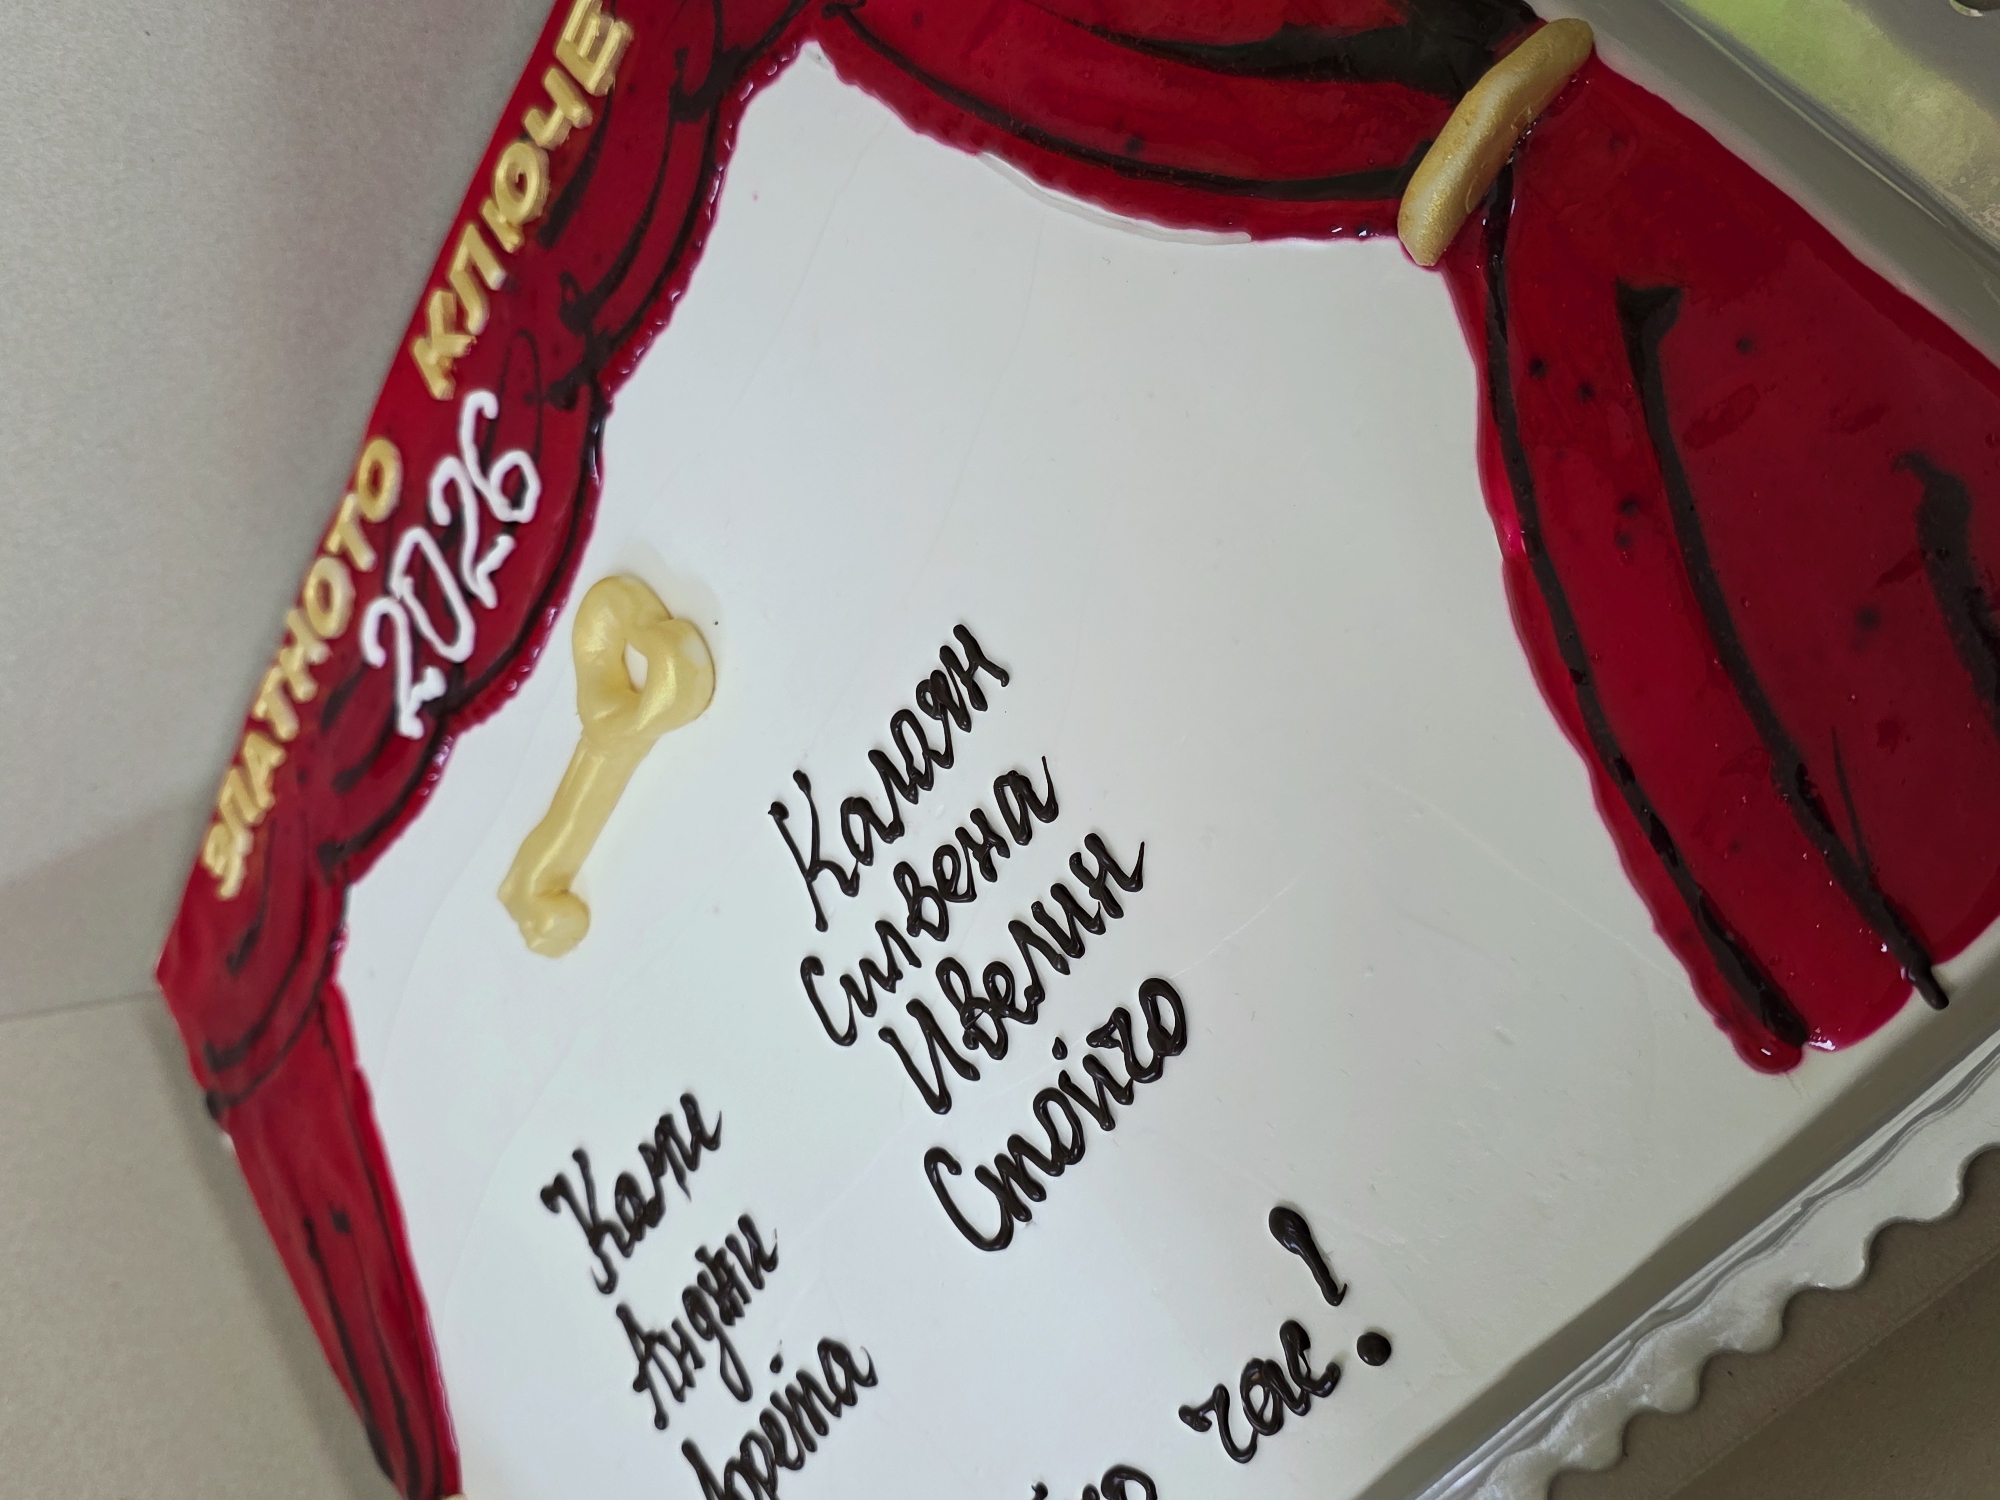 ЗЛАТНОТО КЛЮЧЕ
2026
Калоян
Силвена
Ивелин
Стойчо
Кати
Андони
час!